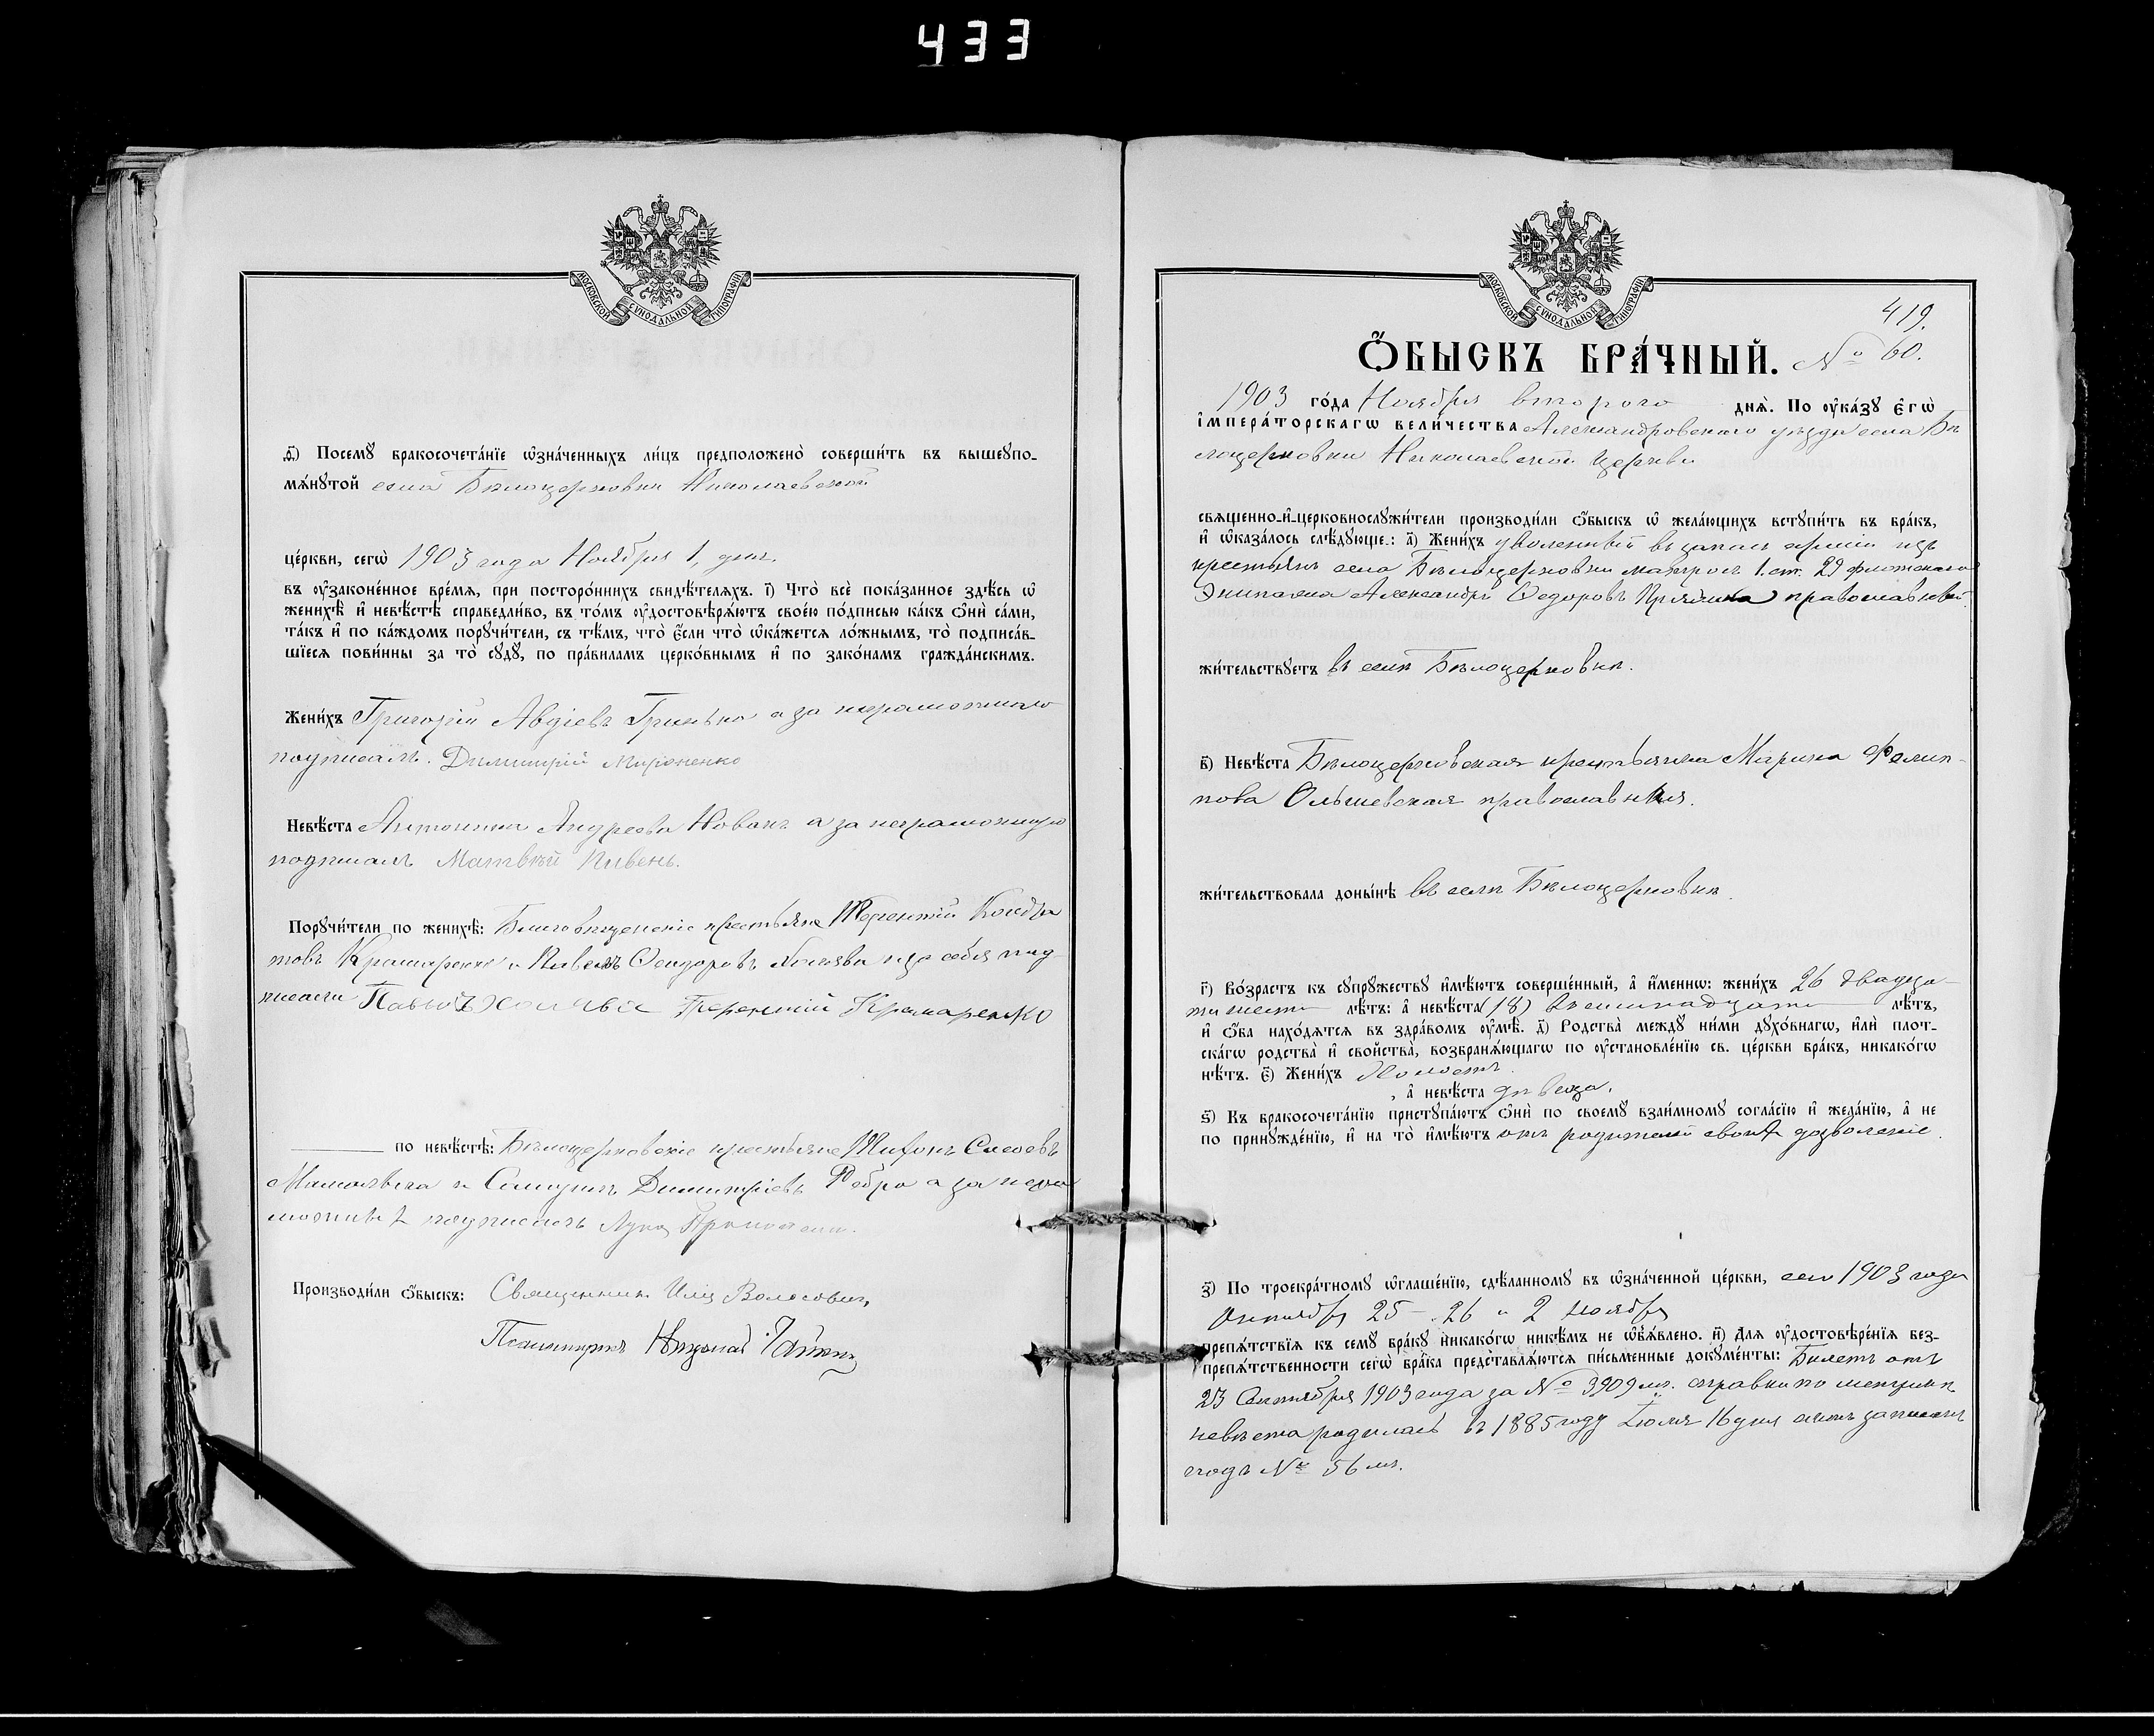 433
МОСКОВСКОЙ СѴНОДАЛЬНОЙ ТИПОГРАФІИ
ѳ҃) Посемꙋ бракосочета́нїе ѡ҆зна́ченныхъ ли́цъ предположено̀ соверши́ть въ вышеупо-
мѧ́нꙋтой села Бѣлоцерковки Николаевской
це́ркви, сегѡ̀ 1903 года Ноября 1, дня.
въ ᲂу҆зако́ненное вре́мѧ, при посторо́ннихъ свидѣ́телѧхъ. і҃) Что̀ всѐ пока́занное здѣ́сь ѡ҆
женихѣ̀ и҆ невѣ́стѣ справедли́во, въ то́мъ ᲂу҆достовѣрѧ́ютъ свое́ю по́дписью ка́къ ѻ҆нѝ са́ми,
та́къ и҆ по ка́ждомъ порꙋчи́тели, съ тѣ́мъ, что̀ є҆́сли что̀ ѡ҆ка́жетсѧ ло́жнымъ, то̀ подписа́в-
шїесѧ пови́нны за то̀ сꙋдꙋ̀, по пра́виламъ церко́внымъ и҆ по зако́намъ гражда́нскимъ.
Жени́хъ Григорій Авдіевъ Гринько а за неграмотнаго
подписалъ. Димитрій Мироненко
Невѣ́ста Антонина Андреева Новакъ а за неграмотную
подписалъ Матвѣй Пивень.
Порꙋчи́тели по женихѣ̀: Благовѣщенскіе крестьяне Терентій Кондра
товъ Крамаренко и Павелъ Ѳеодоровъ Халява и за себя под-
писали Павелъ Халява Терентій Крамаренко
по невѣ́стѣ: Бѣлоцерковскіе крестьяне Тихонъ
и Димитріевъ Ребро а за негра
мотныхъ подписалъ Лука
Производи́ли ѻ҆́быскъ: Священникъ Илія Волосовичъ
Псаломщикъ Николай
МОСКОВСКОЙ СѴНОДАЛЬНОЙ ТИПОГРАФІИ
419.
Ѻ҆́БЫСКЪ БРА́ЧНЫЙ. № 60.
1903 го́да Ноября второго днѧ̀. По ᲂу҆ка́зꙋ є҆гѡ̀
і҆мпера́торскагѡ вели́чества Александровскаго уѣзда села Бѣ
лоцерковки Николаевской церкви
свѧщенно-и҆-церковнослꙋжи́тели производи́ли ѻ҆́быскъ ѡ҆ жела́ющихъ встꙋпи́ть въ бра́къ,
и҆ ѡ҆каза́лось слѣ́дꙋющее: а҃) Жени́хъ уволенный въ запасъ арміи изъ
крестьянъ села Бѣлоцерковки матросъ 1. ст. 29 флотскаго
Экипажа Александръ Ѳедоровъ православный.
жи́тельствꙋетъ въ селѣ Бѣлоцерковкѣ.
в҃) Невѣ́ста Бѣлоцерковская крестьянка Марина Филип-
пова Ольшевская православная.
жи́тельствовала доны́нѣ въ селѣ Бѣлоцерковкѣ.
г҃) Во́зрастъ къ сꙋпрꙋ́жествꙋ и҆мѣ́ютъ соверше́нный, а҆ и҆́меннѡ: жени́хъ 26 двадца-
ти шести лѣ́тъ: а҆ невѣ́ста (18) восемнадцати лѣ́тъ,
и҆ ѻ҆́ба нахо́дѧтсѧ въ здра́вомъ ᲂу҆мѣ̀. д҃) Родства̀ междꙋ̀ ни́ми дꙋхо́внагѡ, и҆лѝ плот-
ска́гѡ родства̀ и҆ сво́йства, возбранѧ́ющагѡ по ᲂу҆становле́нїю св. це́ркви бра́къ, никако́гѡ
нѣ́тъ. є҃) Жени́хъ холостъ.
, а҆ невѣ́ста дѣвица.
ѕ҃) Къ бракосочета́нїю пристꙋпа́ютъ ѻ҆нѝ по своемꙋ̀ взаи́мномꙋ согла́сїю и҆ жела́нїю, а҆ не
по принꙋжде́нїю, и҆ на то̀ и҆мѣ́ютъ отъ родителей своихъ дозволеніе.
з҃) По троекра́тномꙋ ѡ҆глаше́нїю, сдѣ́ланномꙋ въ ѡ҆зна́ченной це́ркви, сего 1903 года
Октября 25 - 26 и 2 ноября
препѧ́тствїѧ къ семꙋ̀ бра́кꙋ никако́гѡ никѣ́мъ не ѡ҆б̾ѧ́влено. и҃) Длѧ ᲂу҆достовѣре́нїѧ без-
препѧ́тственности сегѡ̀ бра́ка представлѧ́ютсѧ пи́сьменные докꙋме́нты: Билетъ отъ
23 Сентября 1903 года за № 3909 мъ. справки по метрикѣ
невѣста родилась въ 1885 году Іюля 16 дня актъ записанъ
подъ № 56 мъ.